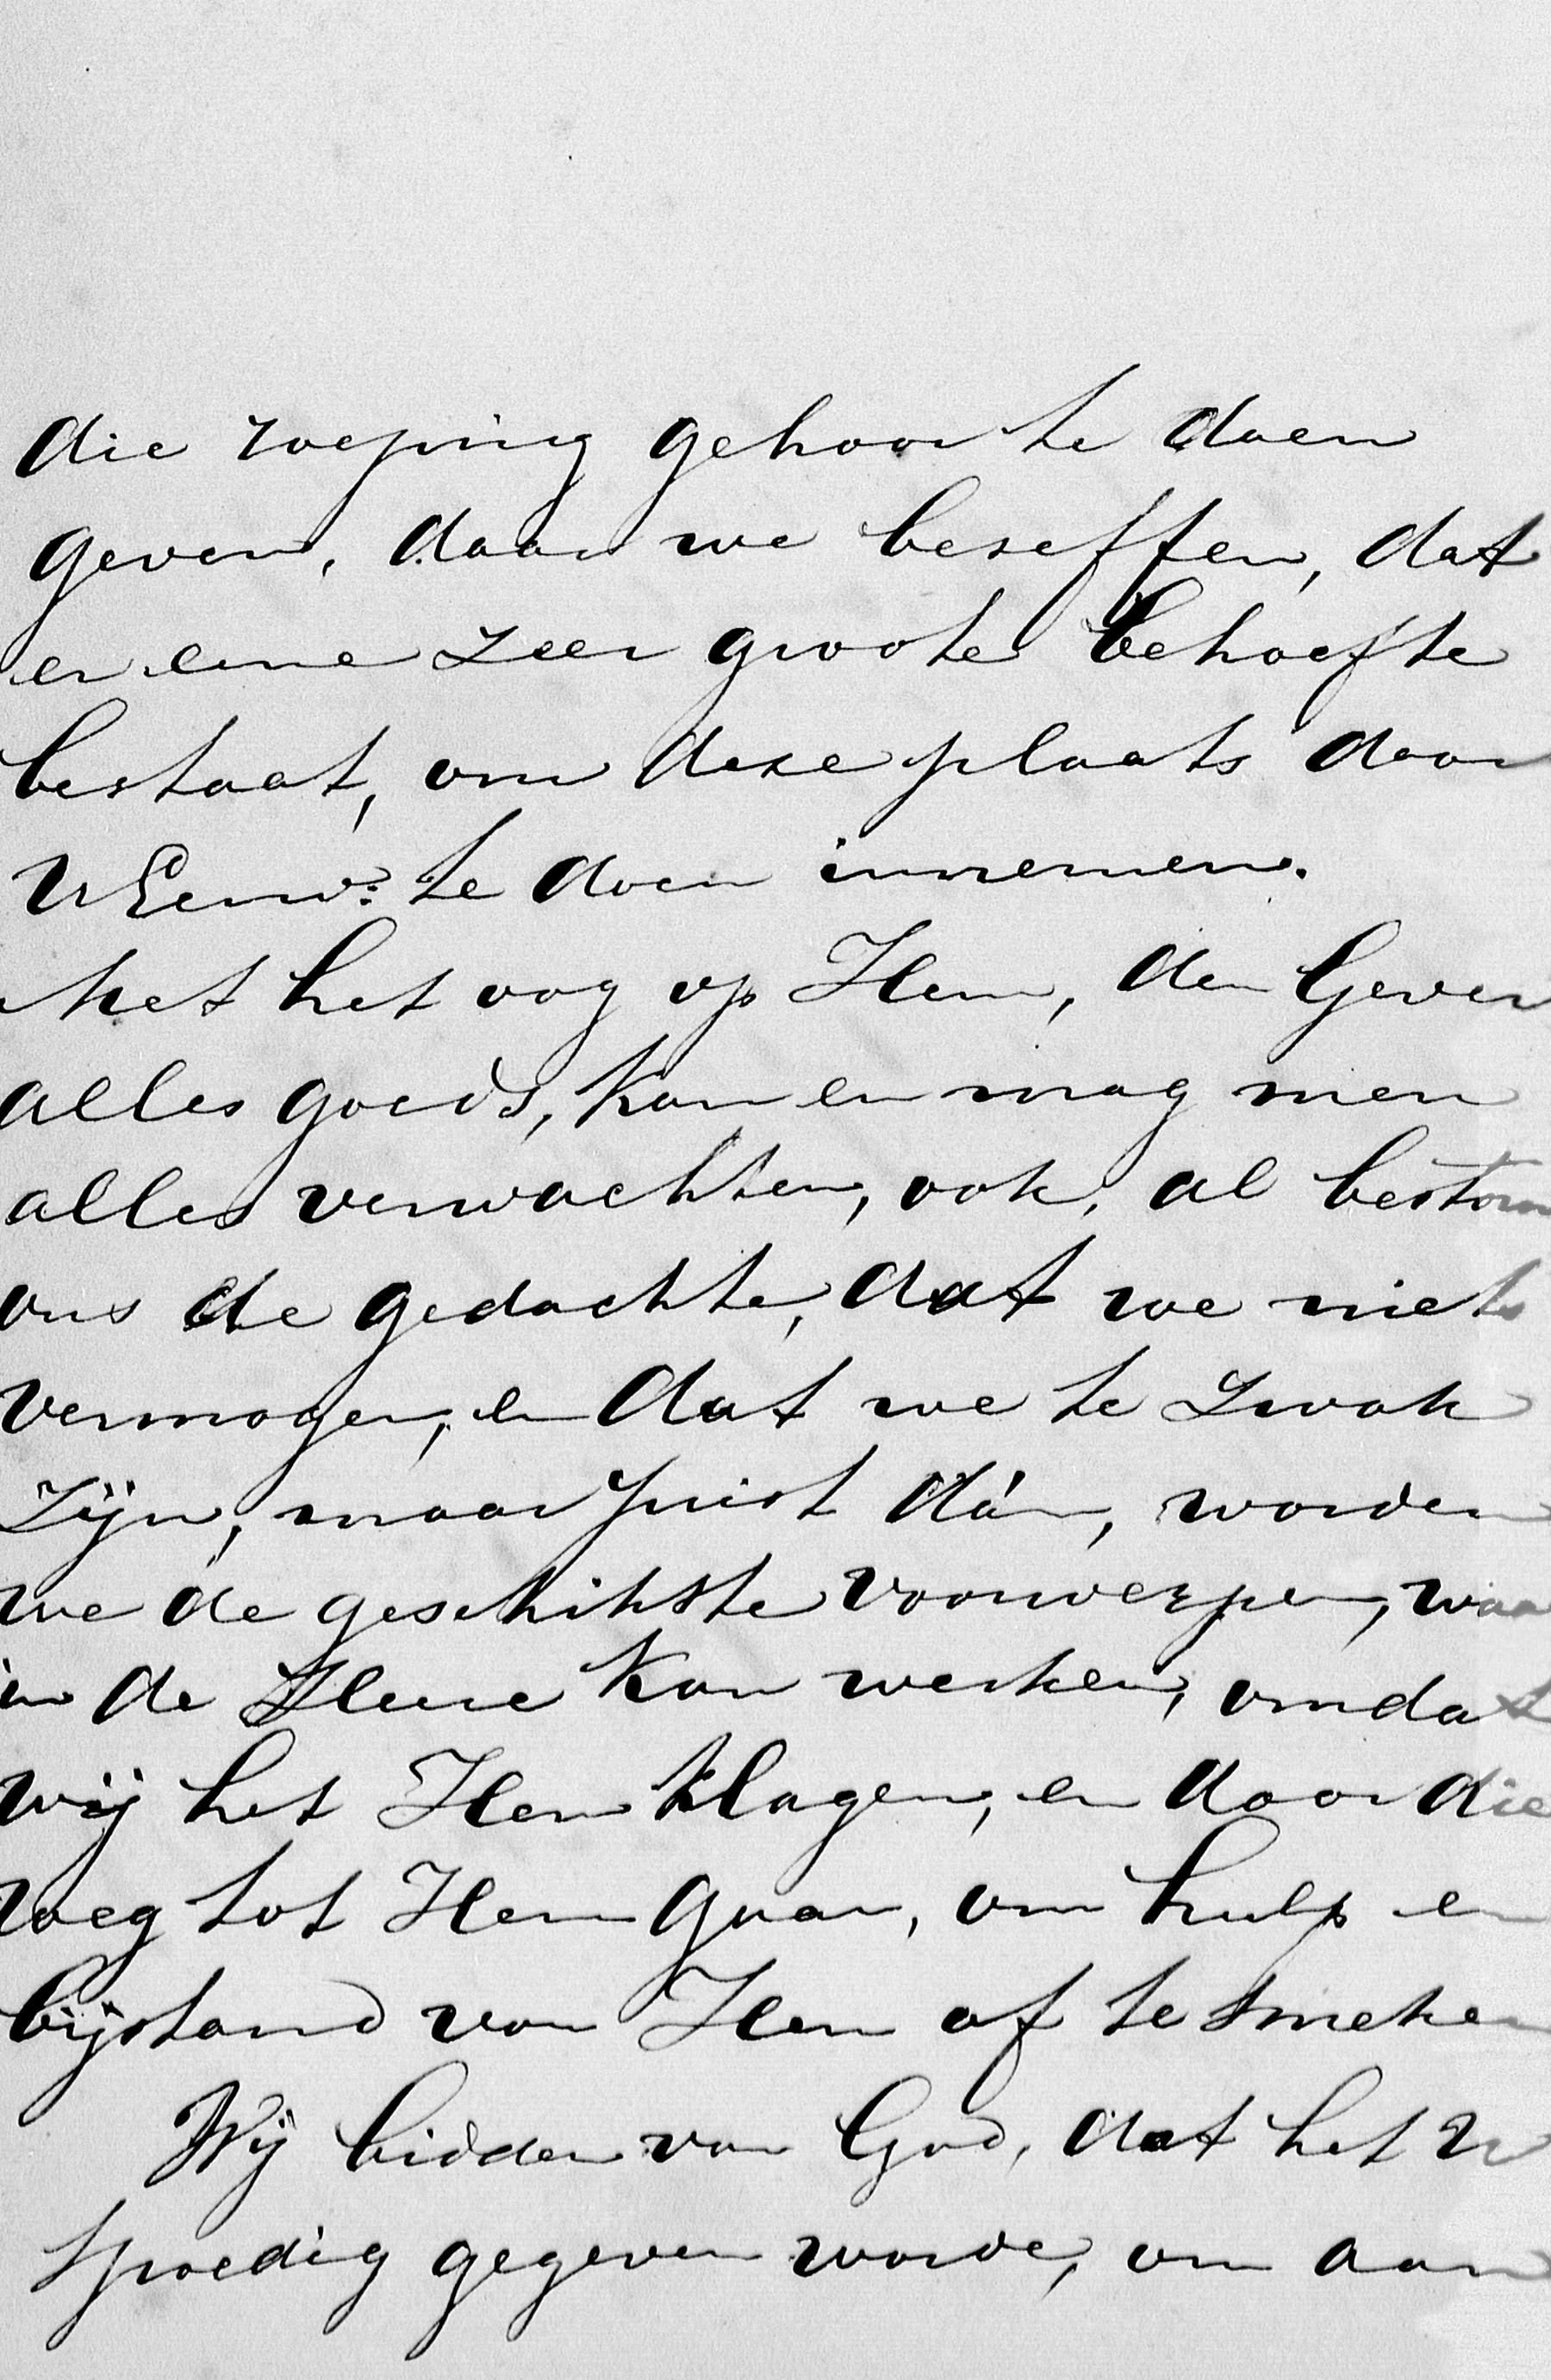 die roeping gehoor te doen
geven, daar we beseffen, dat
er eene zeer groote behoefte
bestaat, om deze plaats door
UEerw: te doen innemen.
Met het oog op Hem, den Gever
alles goeds, kan en mag men
alles verwachten, ook, al bestorm
ons de gedachte, dat we niets
vermogen, en dat we te zwak
zijn, maar juist dán, worden
we de geschikste voorwerpen, waar
in de Heere kan werken, omdat
wij het Hem klagen, en door die
weg tot Hem gaan, om hulp en
bijstand van Hem af te smeken
Wij bidden van God, dat het U
spoedig gegeven worde, om aan